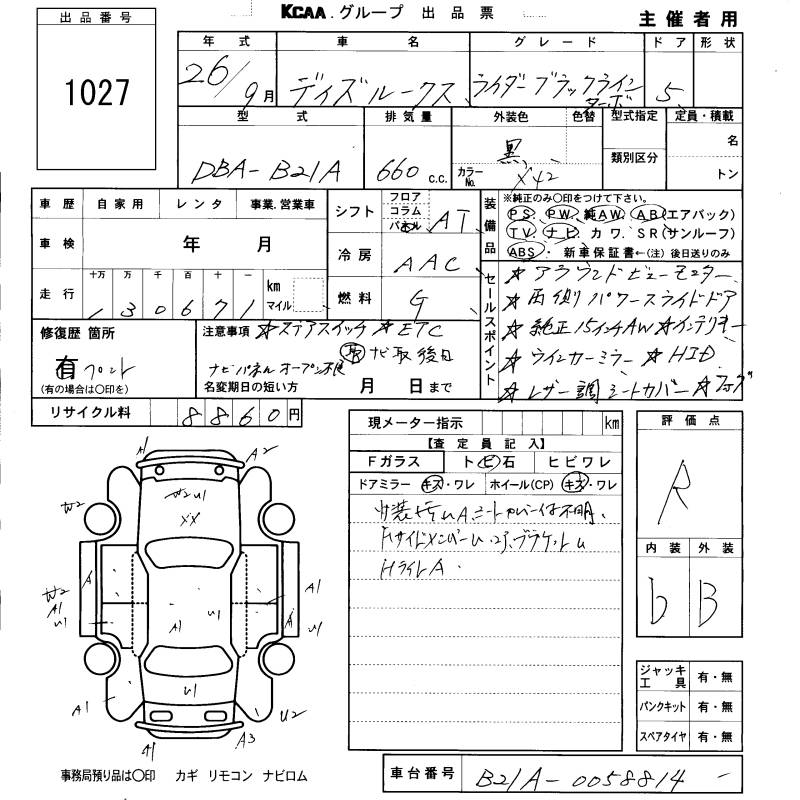 出品番号
1027
KCAA.グループ 出品票
主催者用
年式 車名 グレード ドア 形状
26/9月 デイズルークス ライダーブラックライン ターボ 5
型式 排気量 外装色 色替 型式指定 定員・積載
DBA-B21A 660c.c. 黒 カラーNo. X42 類別区分 名 トン
車歴 自家用 レンタ 事業.営業車
車検 年 月
走行 十万 万 千 百 十 一
130671 km マイル
シフト フロア コラム パネル AT
冷房 AAC
燃料 G
装備品
※純正のみ○印をつけて下さい。
PS. PW. 純AW. AB(エアバック)
TV. ナビ カワ. SR(サンルーフ)
ABS. 新車保証書←(注)後日送りのみ
セールスポイント
☆アラウンドビューモニター
☆両側パワースライドドア
☆純正15インチAW☆インテリキー
☆ウインカーミラー ☆HID
☆レザー調シートカバー☆フォグ
修復歴 箇所
有 フロント
(有の場合は○印を)
注意事項 ☆ステアスイッチ☆ETC
ナビ取後日
ナビパネルオープン不良
名変期日の短い方 月 日まで
リサイクル料 8860円
現メーター指示 km
【査定員記入】
Fガラス トビ石 ヒビワレ
ドアミラー キズ・ワレ ホイール(CP) キズ・ワレ
シートカバー中不明.
FサイドメンバーU
HライトA.
評価点
R
内装 外装
b B
ジャッキ工具 有・無
パンクキット 有・無
スペアタイヤ 有・無
A1 A2
W2 W2 U1
XX
A A1
W2 A1 U1
A1 U1 A U1
U1
A1 U2
A1 A3
事務局預り品は○印 カギ リモコン ナビロム
車台番号 B21A-0058814